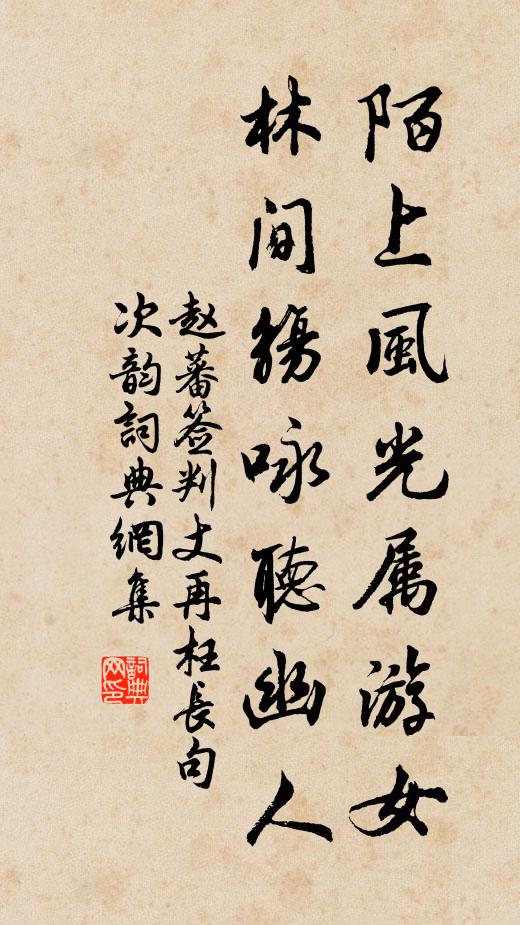 陌上風光属游女
林间觴咏聽幽人
赵蕃签判丈再枉長句
次韵詞典網集
詞典网印